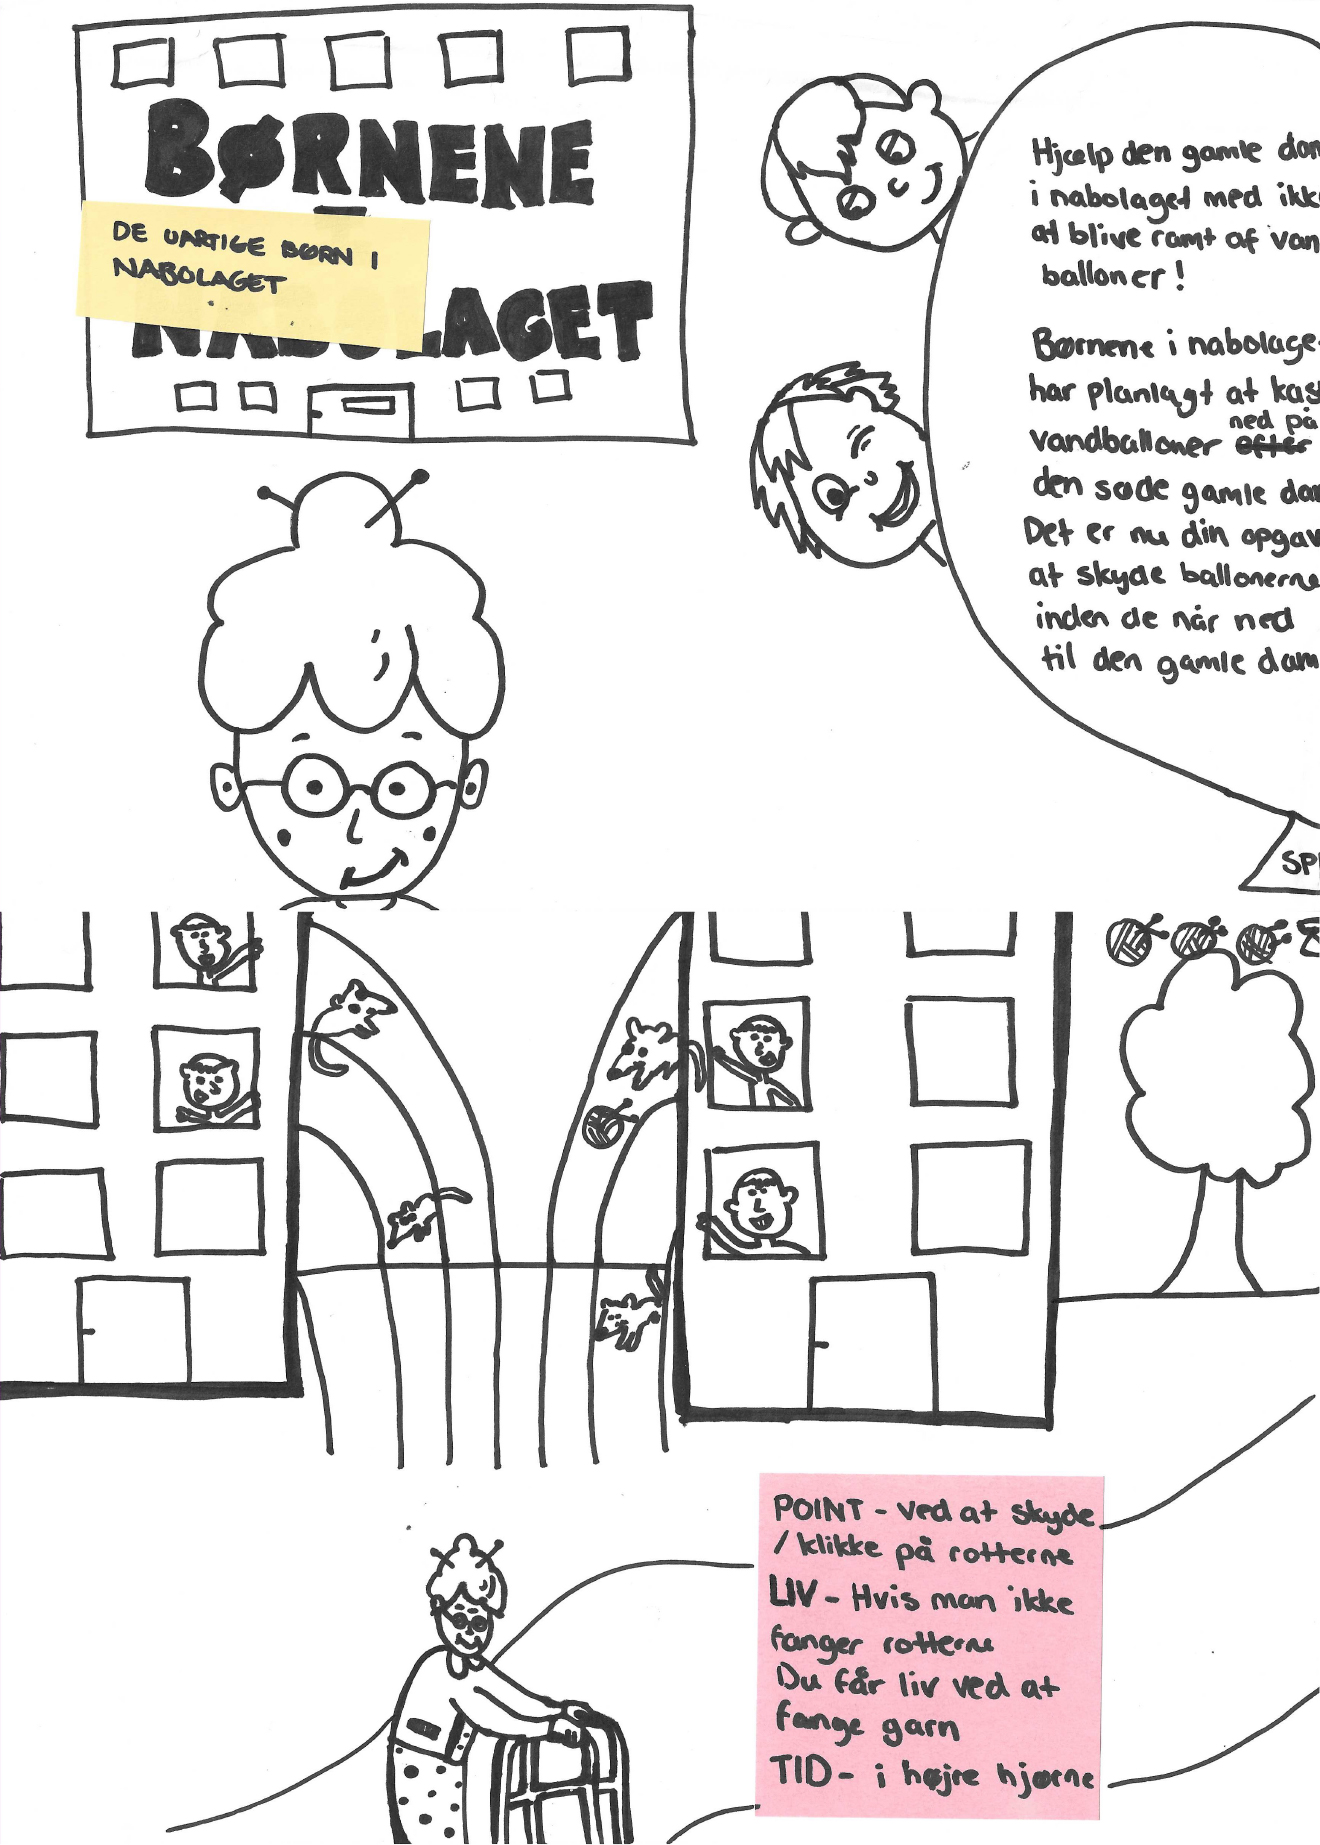 BØRNENE
I
NABOLAGET
DE UARTIGE BØRN I
NABOLAGET
Hjælp den gamle dam
i nabolaget med ikke
at blive ramt af van
balloner!
Børnene i nabolage
har planlagt at kas
ned på
vandballoner efter
den søde gamle dam
Det er nu din opgav
at skyde ballonerne
inden de når ned
til den gamle dam
SPI
POINT - ved at skyde
/ klikke på rotterne
LIV - Hvis man ikke
fanger rotterne
Du får liv ved at
fange garn
TID - i højre hjørne